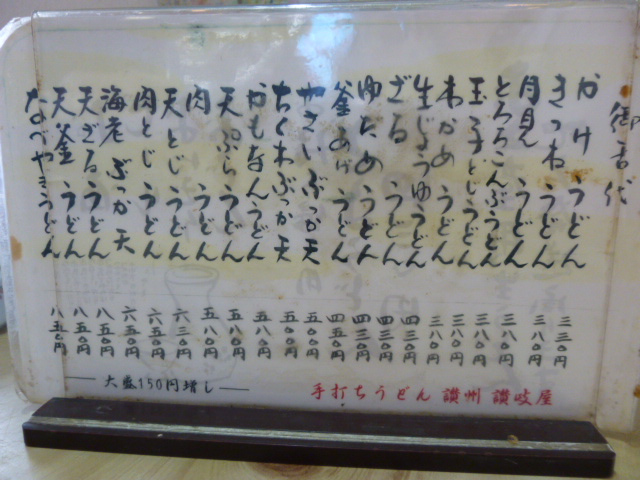 かけうどん
きつねうどん
月見うどん
とろろこんぶうどん
玉子とじうどん
わかめうどん
生じょうゆうどん
ざるうどん
ゆだめうどん
釜あげうどん
やさいぶっか天
ちくわぶっか天
かもなんうどん
天ぷらうどん
肉うどん
天とじうどん
肉とじうどん
海老ぶっか天
天ざるうどん
天釜うどん
なべやきうどん
三三〇円
三八〇円
三八〇円
三八〇円
三八〇円
三八〇円
四三〇円
四三〇円
四三〇円
四五〇円
五〇〇円
五〇〇円
五八〇円
五八〇円
五八〇円
六三〇円
六五〇円
六五〇円
八五〇円
八五〇円
八五〇円
大盛150円増し
手打ちうどん 讃州 讃岐屋